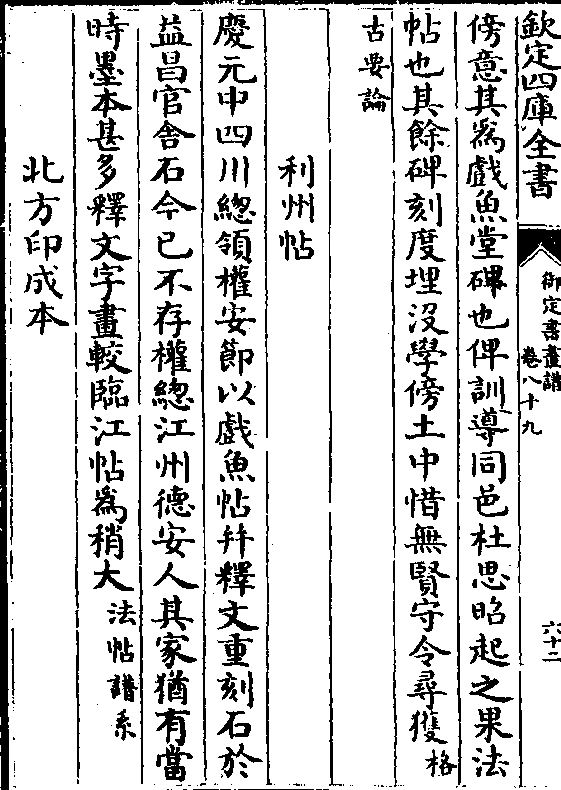 欽定四庫全書
御定書畫譜
卷八十九
六十二
傍意其為戲魚堂碑也俾訓導同邑杜思昭起之果法
帖也其餘碑刻度埋沒學傍土中惜無賢守令尋獲格
古要論
利州帖
慶元中四川總領權安節以戲魚帖并釋文重刻石於
益昌官舍石今已不存權總江州德安人其家猶有當
時墨本甚多釋文字畫較臨江帖為稍大法帖譜系
北方印成本